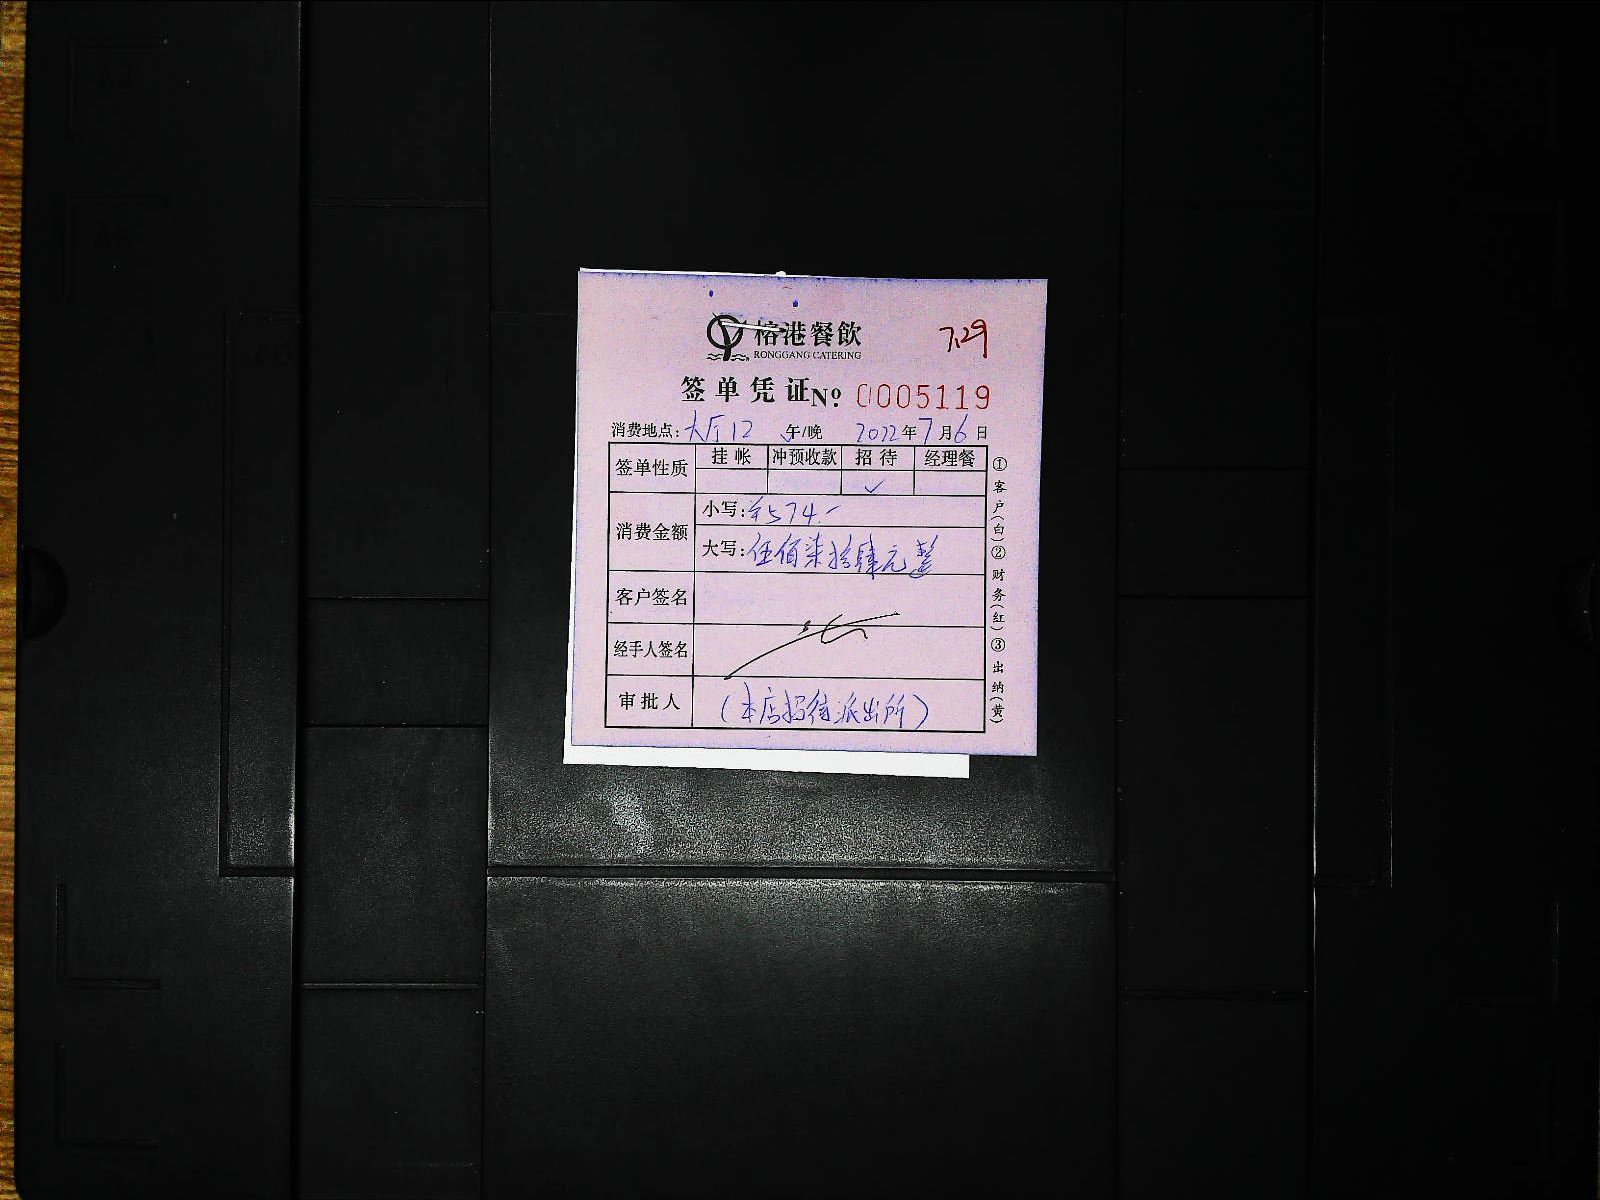 榕港餐飲
RONGGANG CATERING
7.29
签单凭证№ 0005119
消费地点: 大厅12 午/晚 2022年7月6日
签单性质 挂帐 冲预收款 招待 经理餐
✓
消费金额
小写: ¥574.-
大写: 伍佰柒拾肆元整
客户签名
经手人签名
审批人 (本店招待派出所)
①客户(白)②财务(红)③出纳(黄)